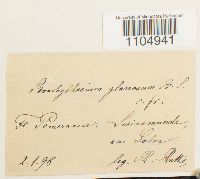 University of Minnesota Herbarium
1104941
Brachythecium glareosum Br. S.
c. fr.
Fl. Pomerania: Swinemünde,
am Holm
2.1.98 leg. R. Ruthe.